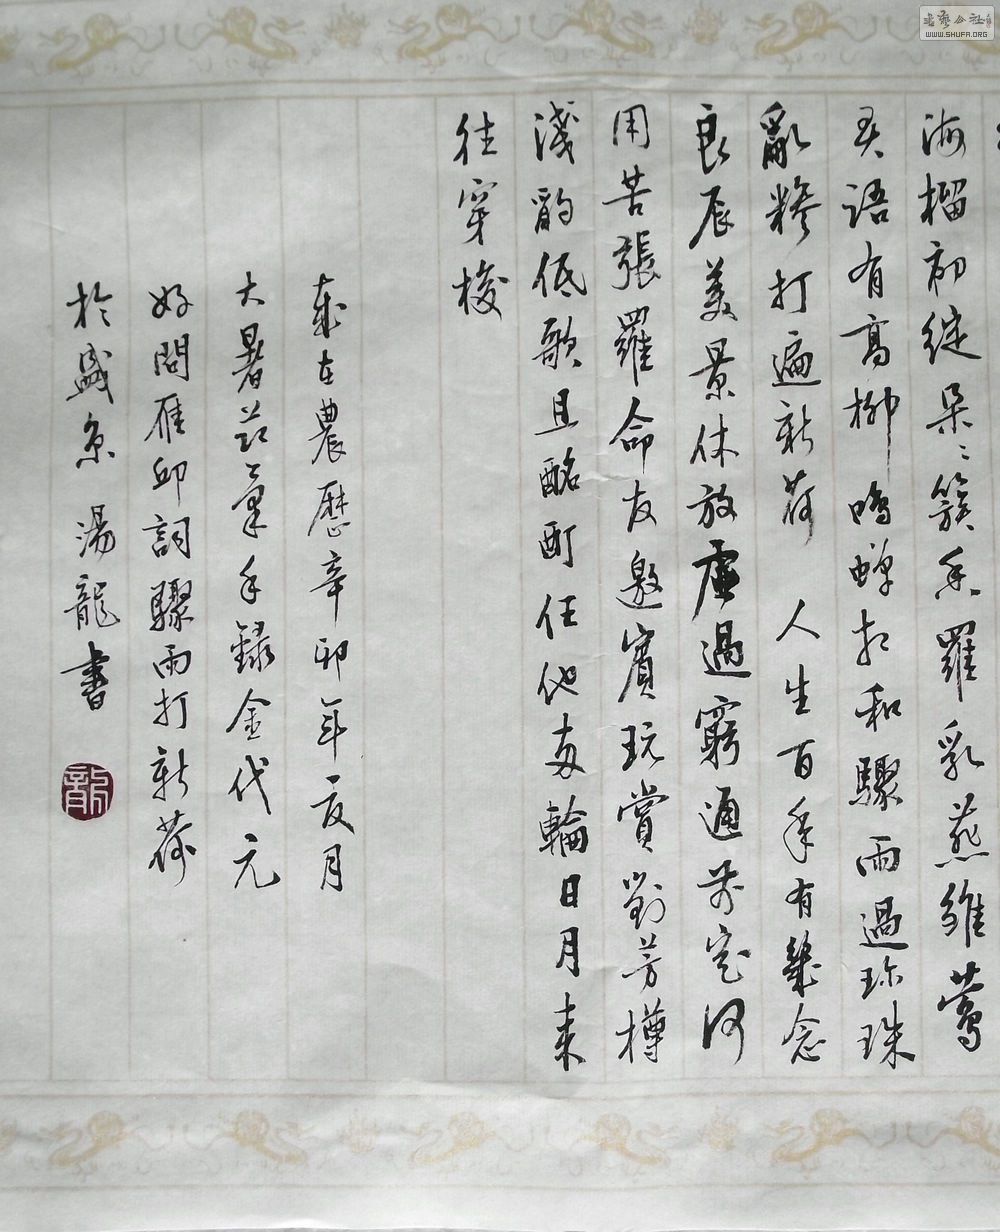 海榴初綻朵〻簇香羅乳燕雛鶯
弄語有高柳鳴蟬相和驟雨過珍珠
亂糝打遍新荷 人生百年有幾念
良辰美景休放虛過窮通前定何
用苦張羅命友邀賓玩賞對芳樽
淺酌低歌且酩酊任他兩輪日月來
往穿梭
歲在農歷辛卯年六月
大暑節筆手錄金代元
好問雁邱詞驟雨打新荷
於盛京湯龍書
龍
書藝公社
WWW.SHUFA.ORG